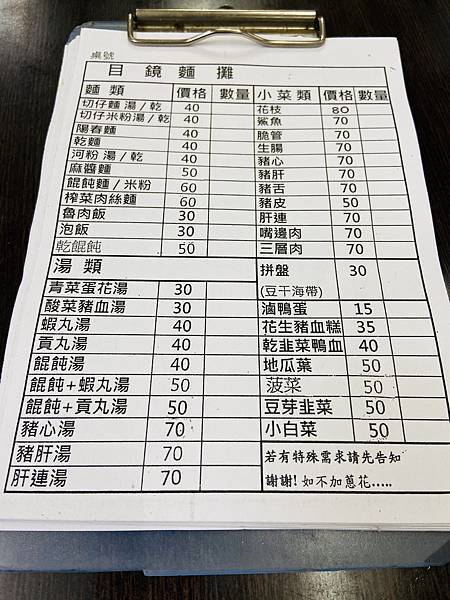 桌號
目鏡麵攤
麵類 價格 數量 小菜類 價格 數量
切仔麵 湯/乾 40 花枝 80
切仔米粉湯/乾 40 鯊魚 70
陽春麵 40 脆管 70
乾麵 40 生腸 70
河粉 湯/乾 40 豬心 70
麻醬麵 50 豬肝 70
餛飩麵/米粉 60 豬舌 70
榨菜肉絲麵 60 豬皮 50
魯肉飯 30 肝連 70
泡飯 30 嘴邊肉 70
乾餛飩 50 三層肉 70
湯類 拼盤 30
(豆干海帶)
青菜蛋花湯 30 滷鴨蛋 15
酸菜豬血湯 30 花生豬血糕 35
蝦丸湯 40 乾韭菜鴨血 40
貢丸湯 40 地瓜葉 50
餛飩湯 40 菠菜 50
餛飩+蝦丸湯 50 豆芽韭菜 50
餛飩+貢丸湯 50 小白菜 50
豬心湯 70
豬肝湯 70
肝連湯 70
若有特殊需求請先告知
謝謝! 如不加蔥花.....